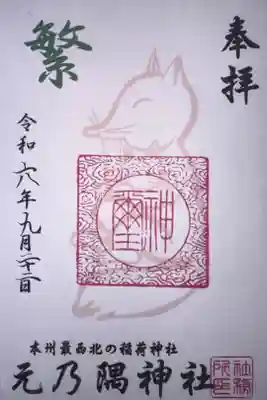 奉拝
繁
神璽
令和六年九月二十二日
本州最西北の稲荷神社
元乃隅神社
社務所印